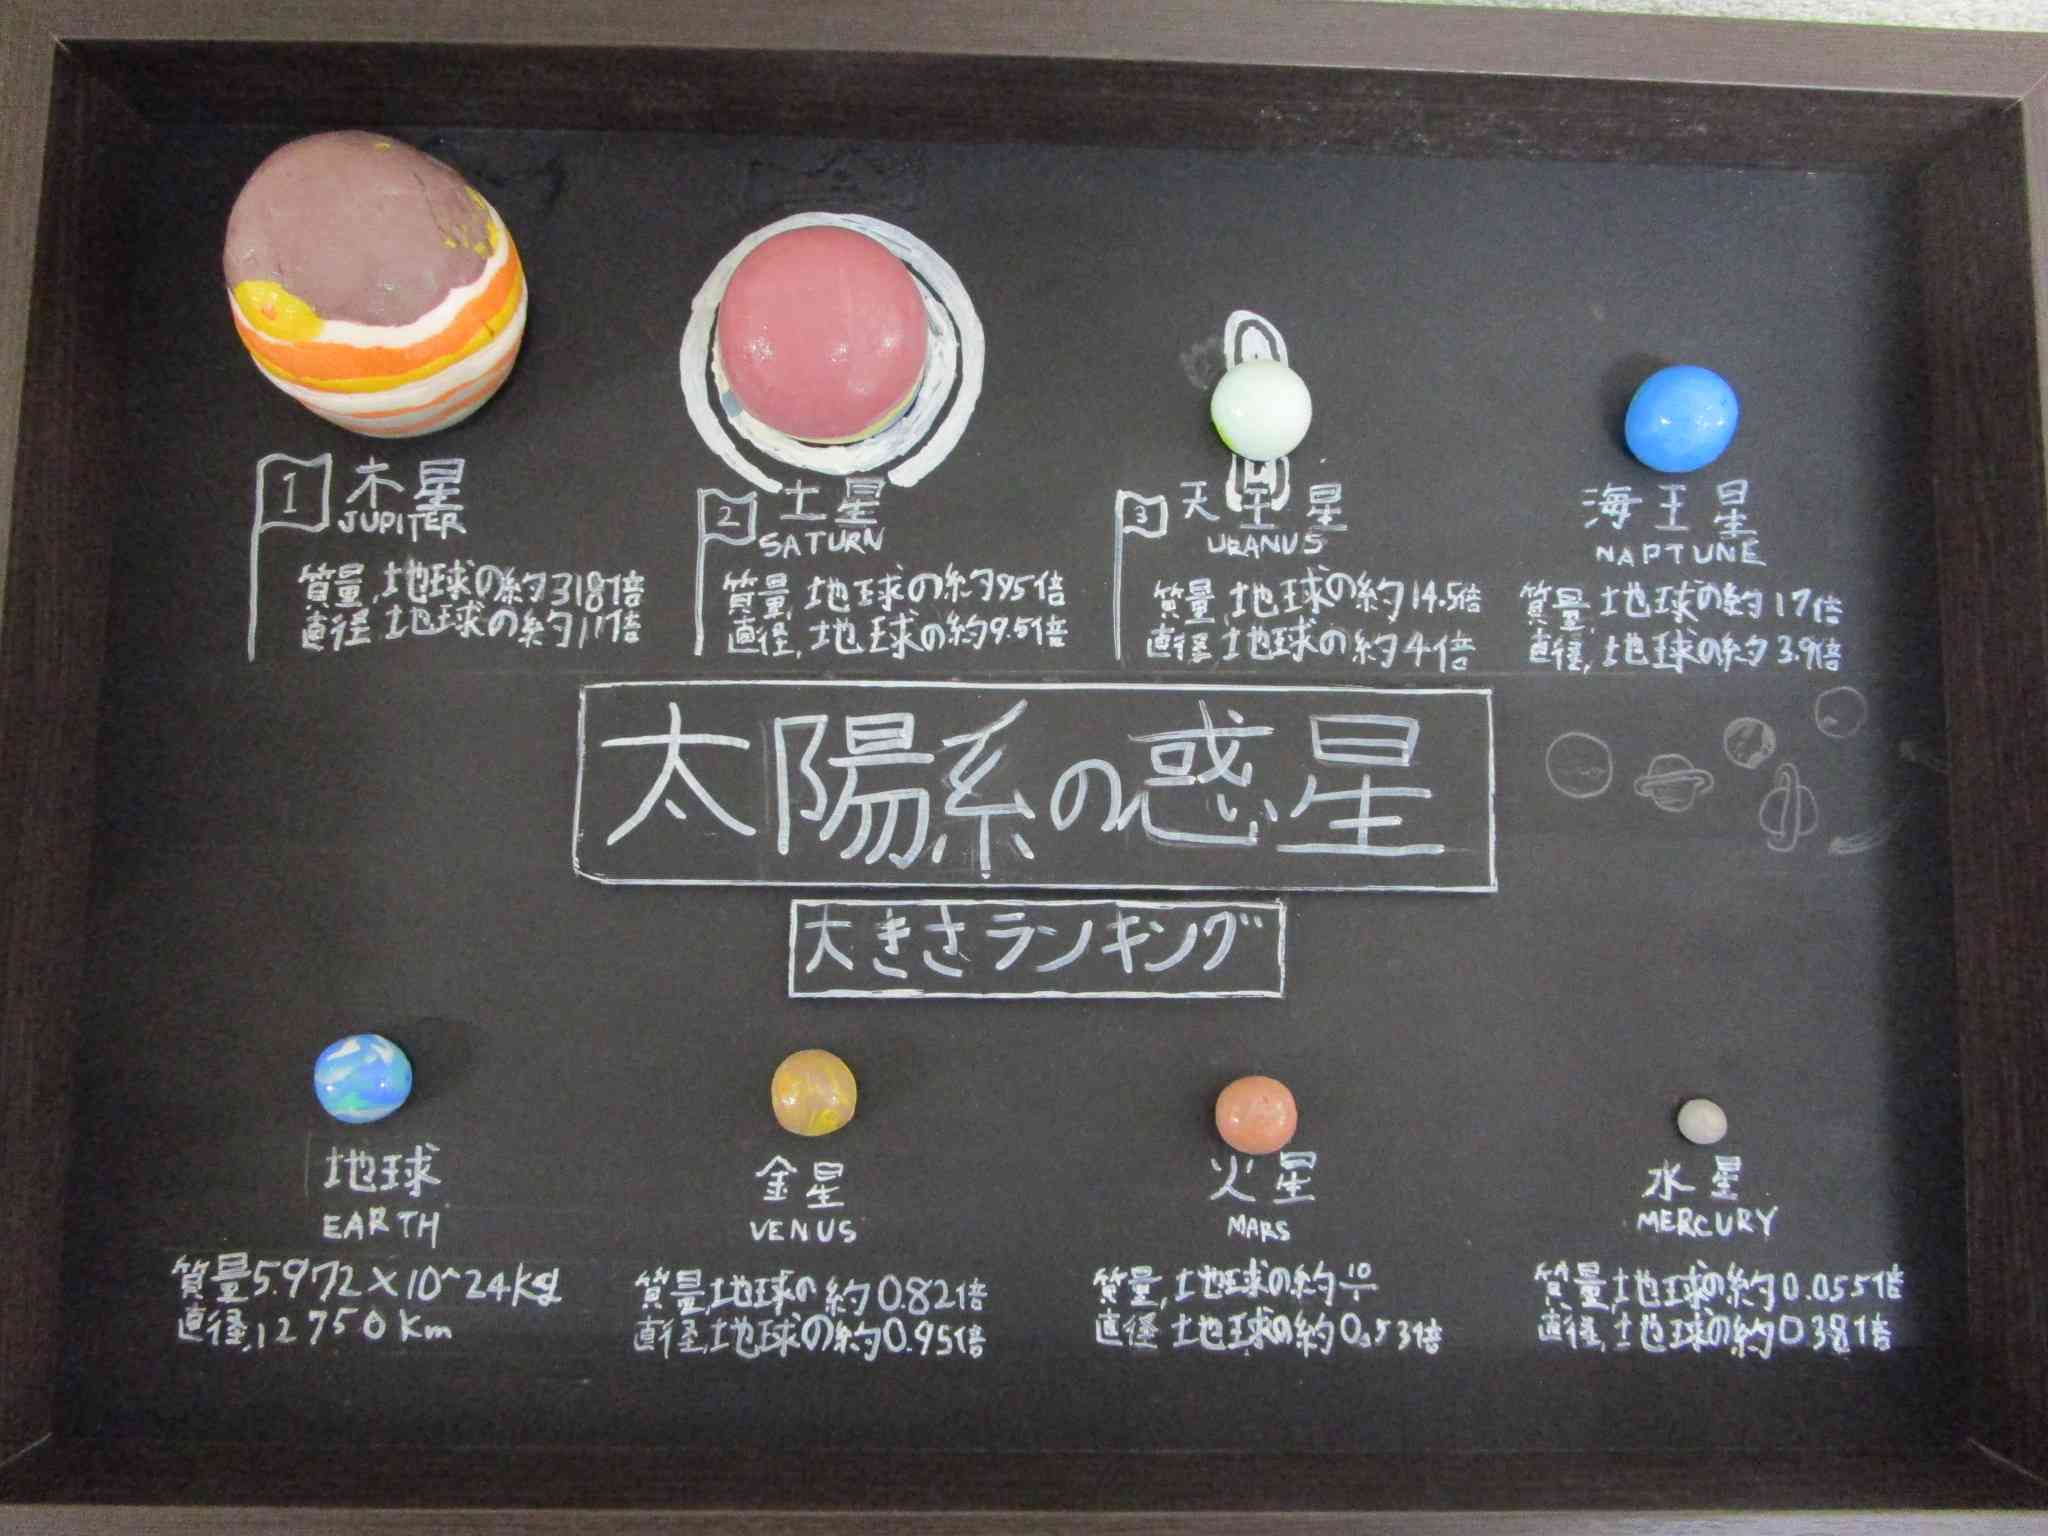 1 木星
JUPITER
質量,地球の約318倍
直径,地球の約11倍
2 土星
SATURN
質量,地球の約95倍
直径,地球の約9.5倍
3 天王星
URANUS
質量,地球の約14.5倍
直径,地球の約4倍
海王星
NAPTUNE
質量,地球の約17倍
直径,地球の約3.9倍
太陽系の惑星
大きさランキング
地球
EARTH
質量5.972×10^24kg
直径,12750km
金星
VENUS
質量,地球の約0.82倍
直径,地球の約0.95倍
火星
MARS
質量,地球の約10/1
直径 地球の約0.53倍
水星
MERCURY
質量,地球の約0.055倍
直径,地球の約0.38倍